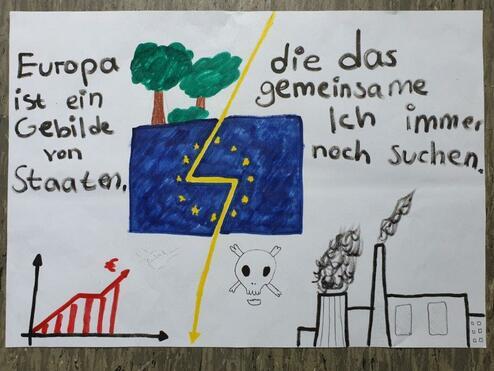 Europa
ist ein
Gebilde
von
Staaten,
die das
gemeinsame
Ich immer
noch suchen.
€